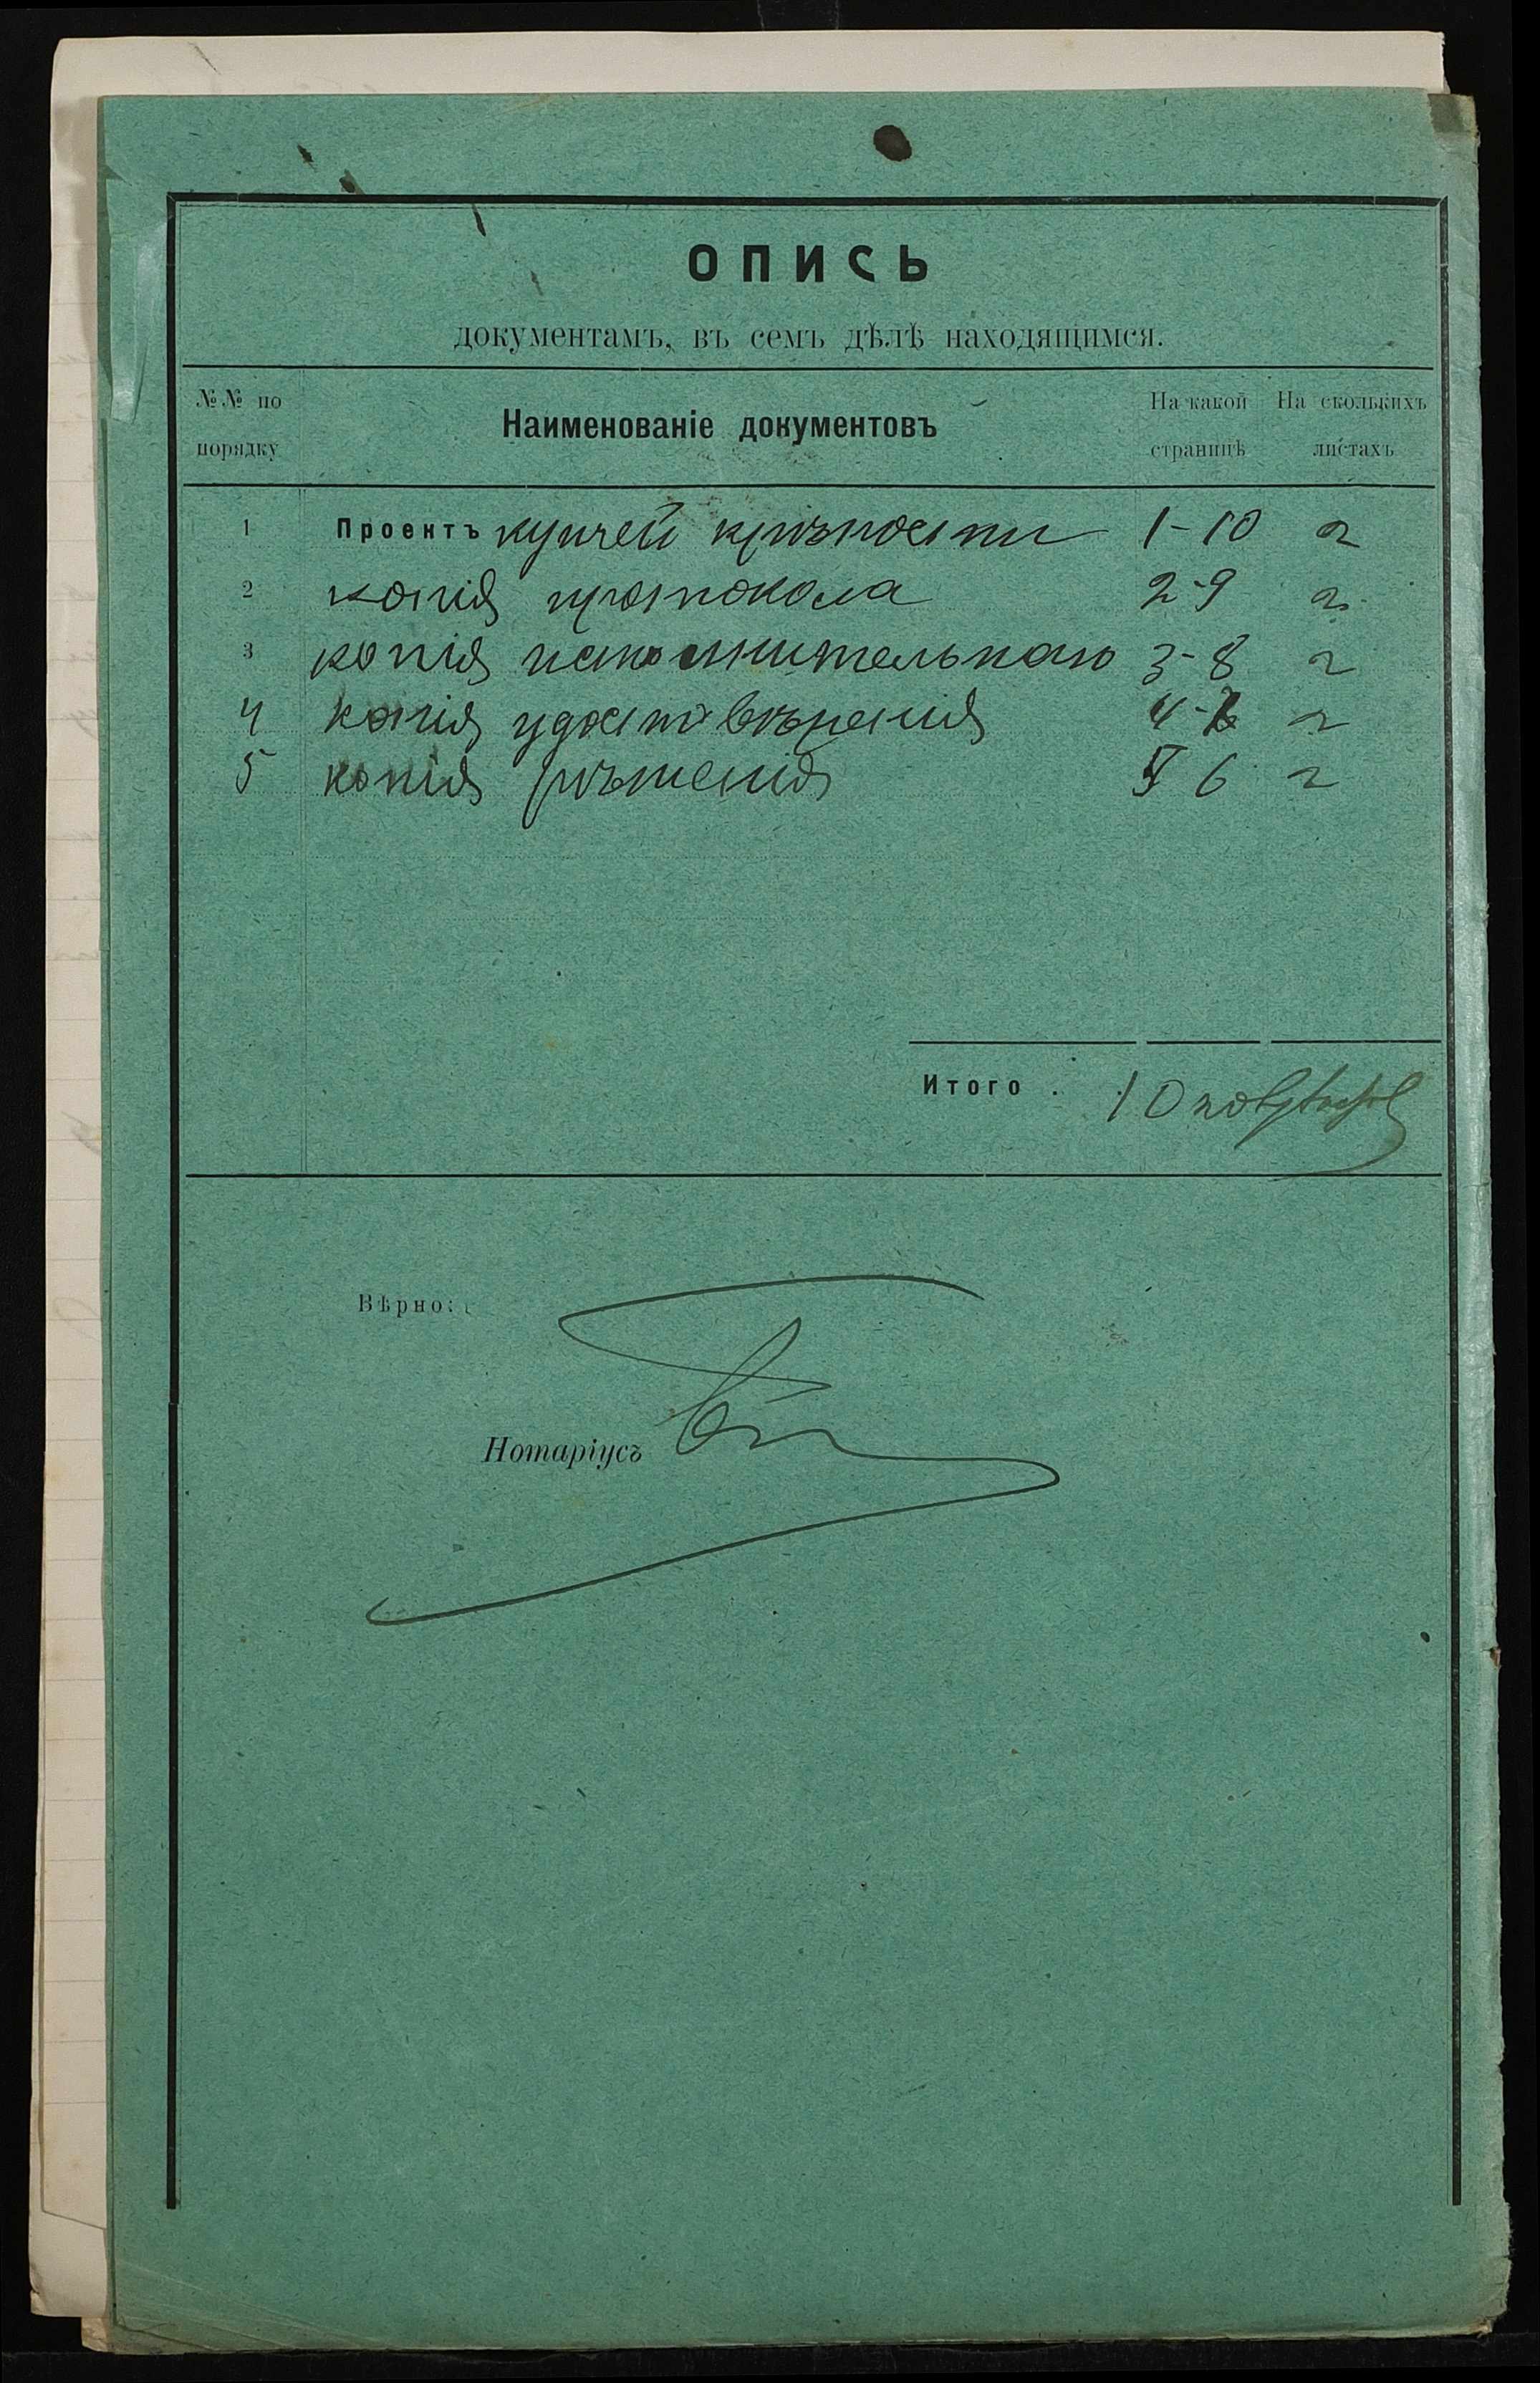 ОПИСЬ
документамъ, въ семъ дѣлѣ находящимся.
№№ по порядку
Наименованіе документовъ
На какой страницѣ
На сколькихъ листахъ
1 Проектъ купчей крѣпости 1-10 2
2 копія протокола 2-9 2
3 копія исполнительнаго 3-8 2
4 копія удостовѣренія 4-7 2
5 копія рѣшенія 5 6 2
Итого . . 10
Вѣрно:
Нотаріусъ